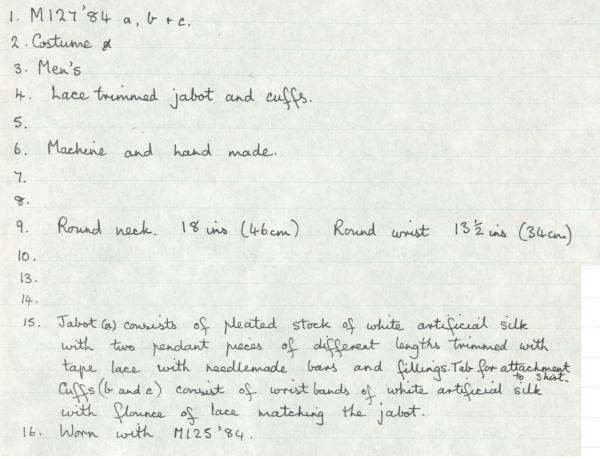 1. M127'84 a, b + c.
2. Costume
3. Men's
4. Lace trimmed jabot and cuffs.
5.
6. Machine and hand made.
7.
8.
9. Round neck. 18 ins (46cm) Round wrist 13½ ins (34cm)
10.
13.
14.
15. Jabot (a) consists of pleated stock of white artificial silk
with two pendant pieces of different lengths trimmed with
tape lace with needlemade bars and fillings. Tab for attachment
to shirt.
Cuffs (b and c) consist of wristbands of white artificial silk
with flounce of lace matching the jabot.
16. Worn with M125'84.